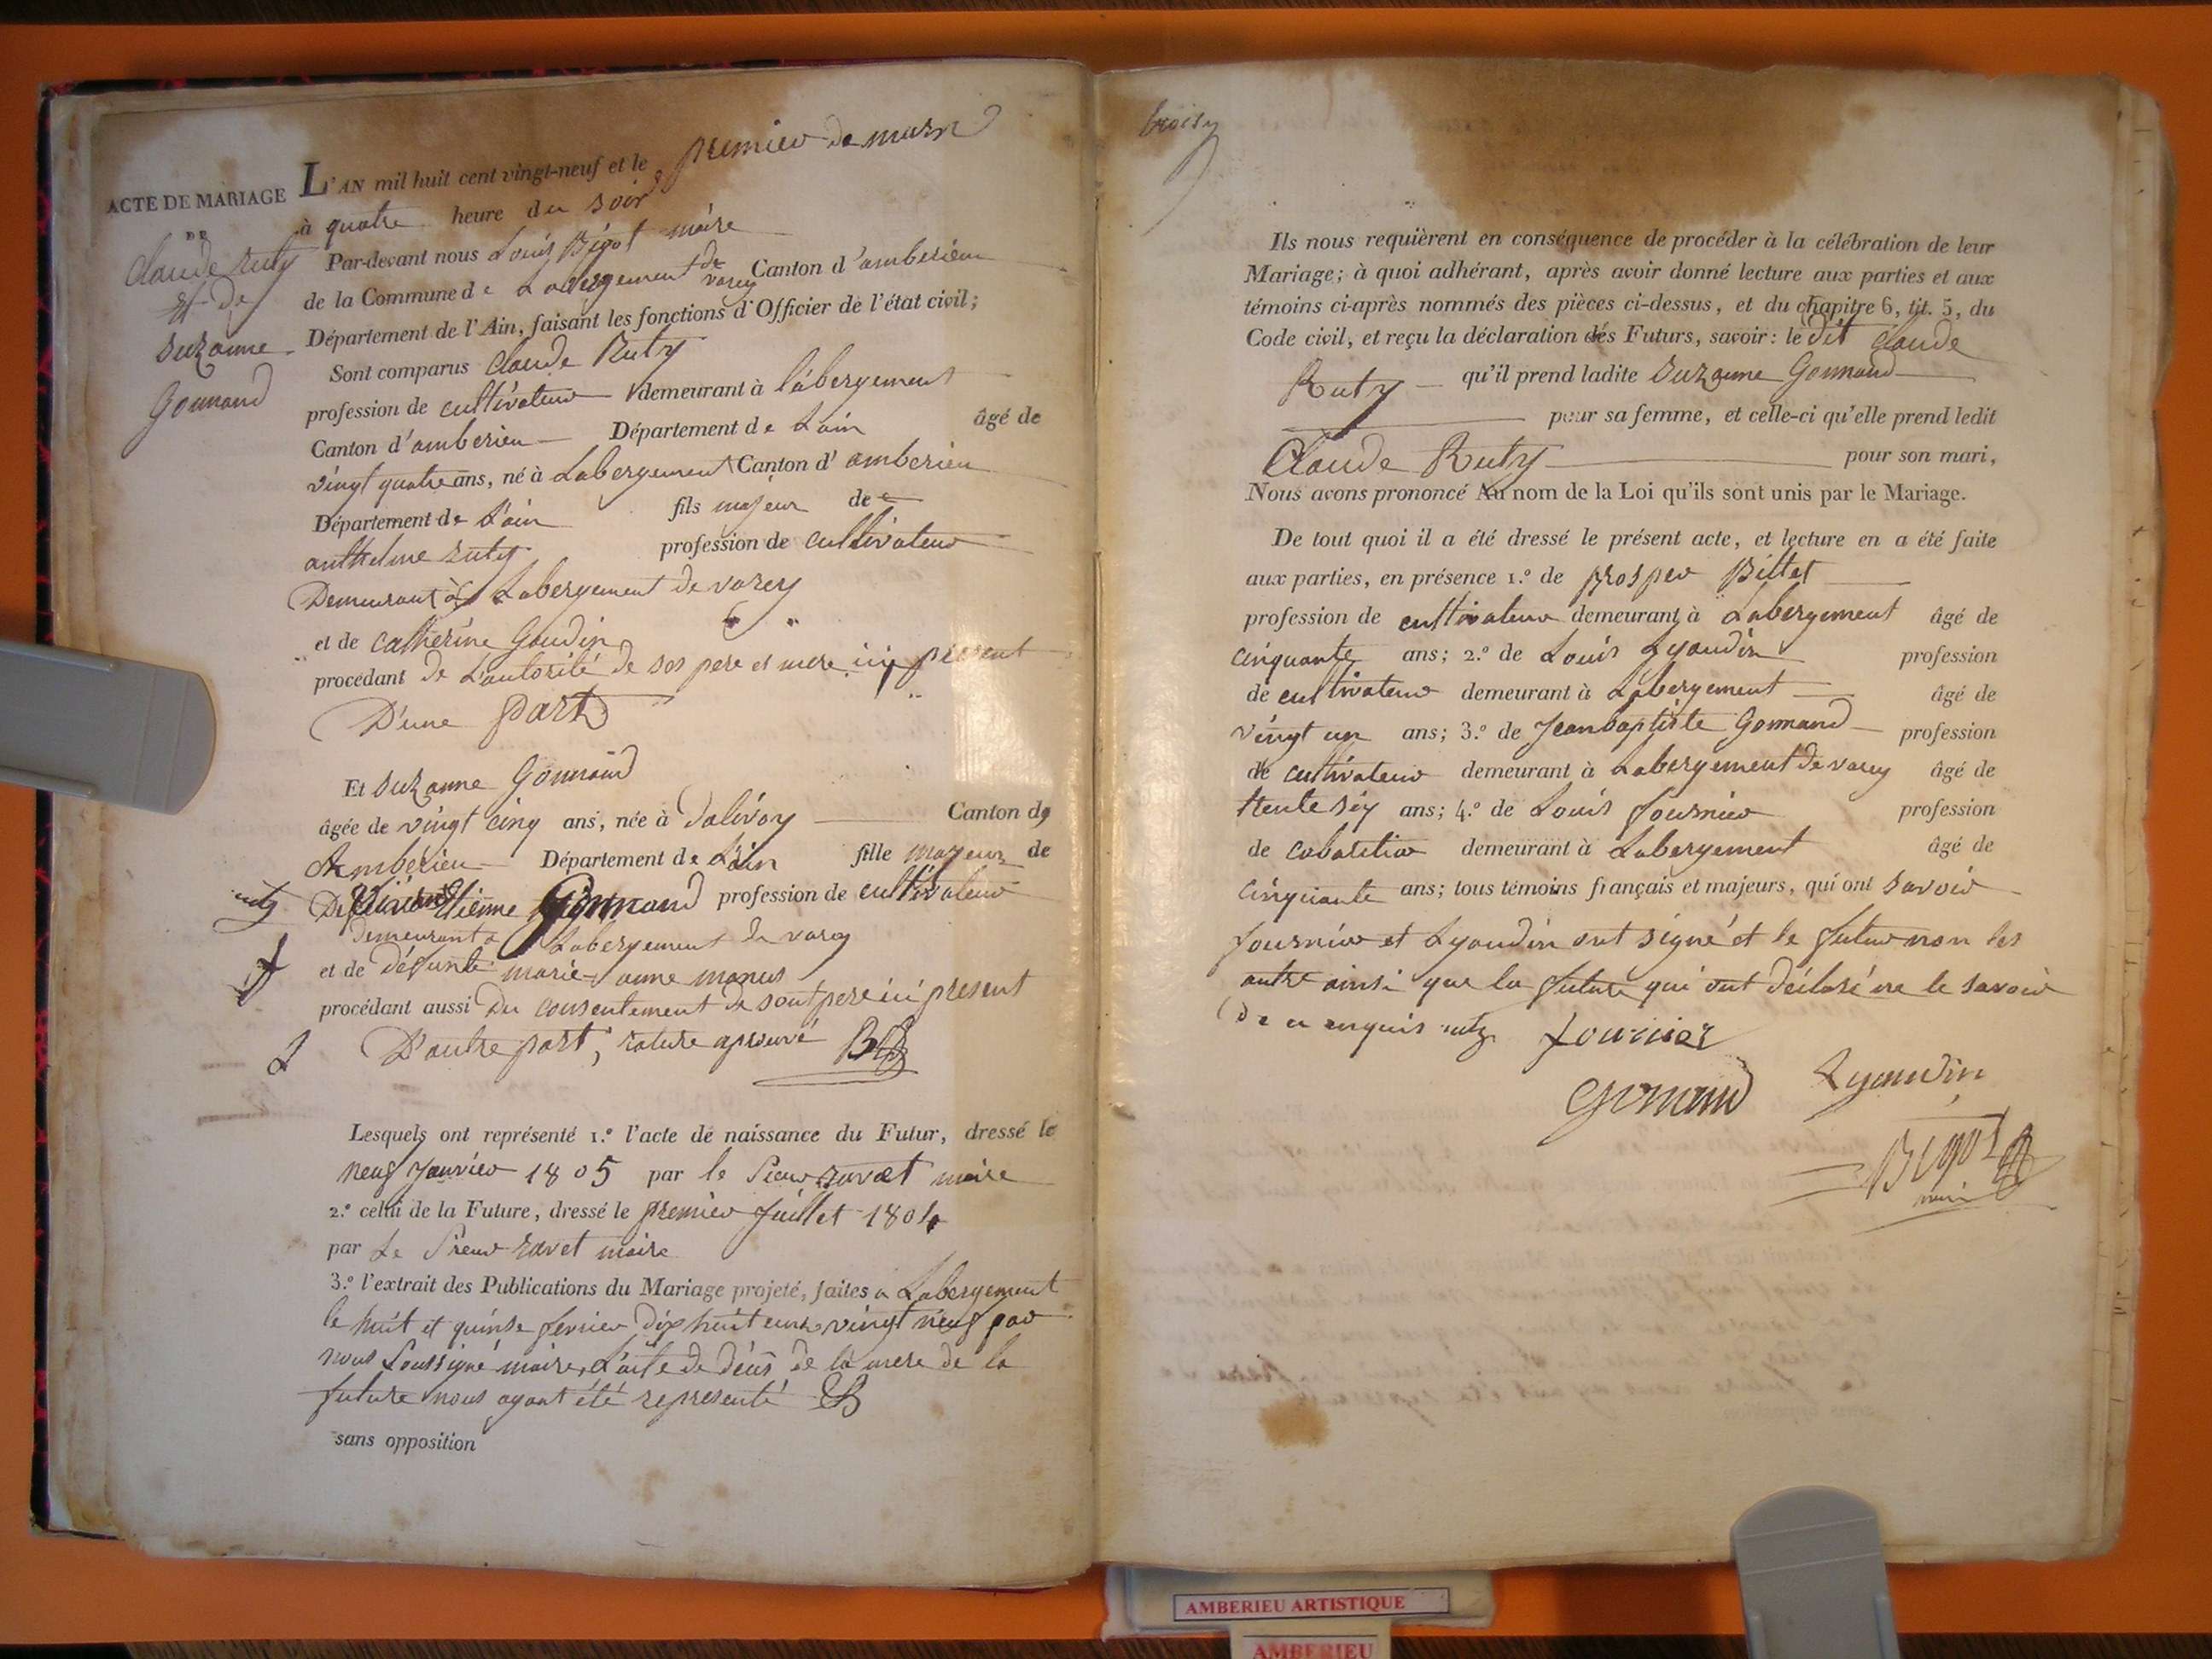 ACTE DE MARIAGE
DE
Claude Ruty
et de
Suzanne
Gonnand
L'AN mil huit cent vingt-neuf et le premier de mars
à quatre heure du soir
Par-devant nous Louis Bigot maire
de la Commune de Labergement de varey Canton d'amberieu
Département de l'Ain, faisant les fonctions d'Officier de l'état civil;
Sont comparus Claude Ruty
profession de cultivateur demeurant à labergement
Canton d'amberieu Département de Lain âgé de
vingt quatre ans, né à Labergement Canton d'amberieu
Département de L'ain fils majeur de
anthelme ruty profession de cultivateur
Demeurant à Labergement de varey
et de catherine Goudin
procédant de L'autorité de ses pere et mere ici present
D'une part
Et suzanne Gonnand
âgée de vingt cinq ans, née à Dalivoy Canton de
Amberieu Département de L'ain fille majeur de
Etienne Gonnand profession de cultivateur
demeurant a Labergement de varey
et de défunte marie-anne manus
procédant aussi Du consentement de sont pere ici present
D'autre part, rature aprouvé
Lesquels ont représenté 1.º l'acte de naissance du Futur, dressé le
neuf Janvier 1805 par le Sieur ravet maire
2.º celui de la Future, dressé le premier Juillet 1804
par Le Sieur ravet maire
3.º l'extrait des Publications du Mariage projeté, faites a Labergement
le huit et quinse fevrier dix huit cent vingt neuf par
nous soussigné maire, L'acte de décés de la mere de la
future nous ayant été representé
sans opposition
Ils nous requièrent en conséquence de procéder à la célébration de leur
Mariage; à quoi adhérant, après avoir donné lecture aux parties et aux
témoins ci-après nommés des pièces ci-dessus, et du chapitre 6, tit. 5, du
Code civil, et reçu la déclaration des Futurs, savoir: le dit Claude
Ruty qu'il prend ladite Suzanne Gonnand
pour sa femme, et celle-ci qu'elle prend ledit
Claude Ruty pour son mari,
Nous avons prononcé Au nom de la Loi qu'ils sont unis par le Mariage.
De tout quoi il a été dressé le présent acte, et lecture en a été faite
aux parties, en présence 1.º de prosper Billet
profession de cultivateur demeurant à Labergement âgé de
cinquante ans; 2.º de Louis Lyaudin profession
de cultivateur demeurant à Labergement âgé de
vingt un ans; 3.º de Jeanbaptiste Gonnand profession
de cultivateur demeurant à Labergement de varey âgé de
trente six ans; 4.º de Louis fournier profession
de cabaretier demeurant à Labergement âgé de
cinquante ans; tous témoins français et majeurs, qui ont savoir
fournier et Lyaudin ont signé et le futur non les
autre ainsi que la future qui ont déclaré ne le savoir
De ce enquis
fournier
gonnand
Lyaudin
Bigot
maire
AMBERIEU ARTISTIQUE
AMBERIEU